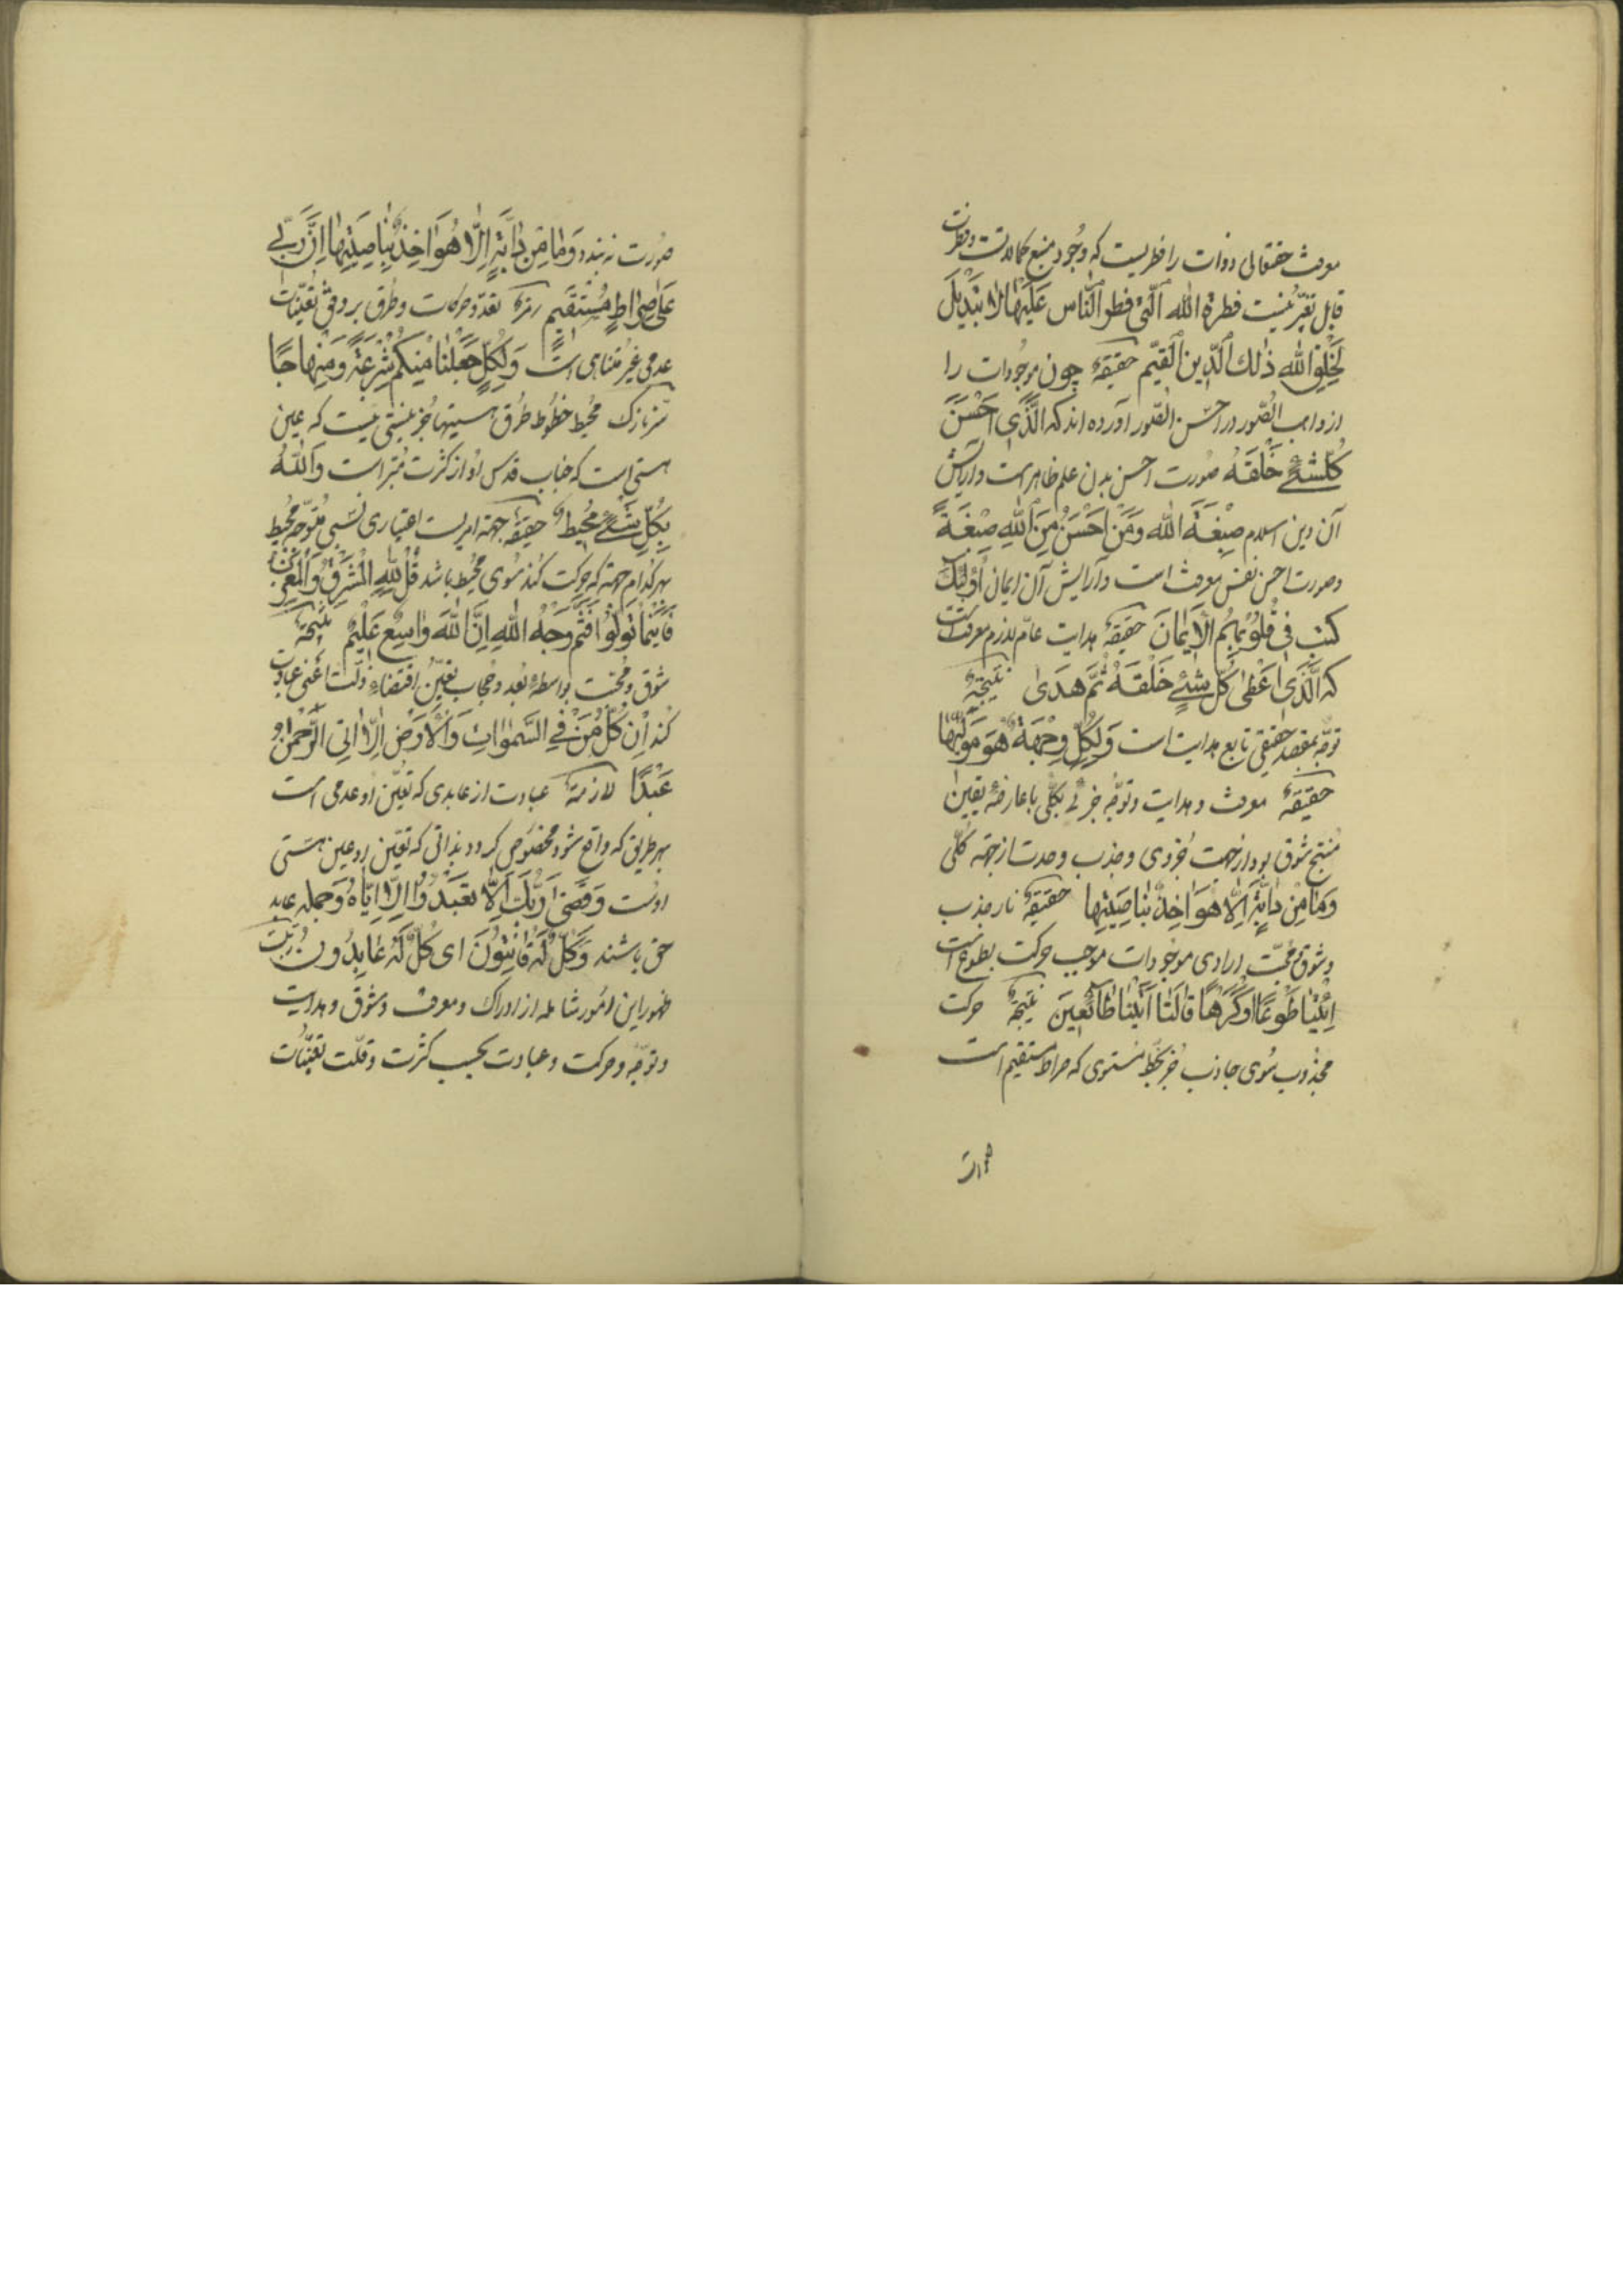 معرفت حقتعالی ذوات را فطریست که وجود منبع کمالاتست و فطرت
قابل تغیّر نیست فطرة الله الّتی فطر النّاس علیها لا تبدیل
لخلق الله ذٰلك الدّین القیّم حقیقة چون موجودات را
از واهب الصّور در احسن الصّور آورده اند که الّذی احسن
کلّ شئ خلقه صورت احسن بدن علم ظاهر است و آرایش
آن دین اسلام صبغة الله ومن احسن من الله صبغة
و صورت احسن نفس معرفت است و آرایش آن ایمان اولئك
کتب فی قلوبهم الایمان حقیقة هدایت عامّ لازم معرفت است
که الّذی اعطی کلّ شئ خلقه ثمّ هدی نتیجة
توجّه بمقصد حقیقی تابع هدایت است ولکلّ وجهة هو مولّیها
حقیقة معرفت و هدایت و توجّه جزئی بکلّی با عارضهٔ یقین
منتج شوق بود از جهت جزوی و جذب وحدت از جهة کلّی
وما من دابّة الّا هو اخذ بناصیتها حقیقة نار جذب
و شوق محبّت ارادی موجودات موجب حرکت بطوع است
ائتیا طوعا او کرها قالتا اتینا طائعین نتیجة حرکت
مجذوب سوی جاذب جز بخطّ مستوی که صراط مستقیم است
صورت
صورت نه بندد وما من دابّة الّا هو اخذ بناصیتها انّ ربّی
علی صراط مستقیم رمزة تعدّد حرکات و طرق بر وفق تعیّنات
عدمی غیر متناهی است ولکلّ جعلنا منکم شرعة ومنهاجا
سرّ نازك محیط خطوط طرق هستیها جز نیستی نیست که عین
هستی است که جناب قدس او از کثرت مبرّاست والله
بکلّ شئ محیط حقیقة جهة امریست اعتباری نسبی متوجّه محیط
بهر کدام جهة که حرکت کند سوی محیط باشد قل لله المشرق والمغرب
فاینما تولّوا فثمّ وجه الله انّ الله واسع علیم نتیجة
شوق و محبّت بواسطهٔ بعد و حجاب تعیّن اقتضاء ذلّت اعنی عبادت
کند ان کلّ من فی السّموات والارض الّا اتی الرّحمٰن
عبدا لازمة عبادت از عابدی که تعیّن او عدمی است
بهر طریق که واقع شود مخصوص گردد بذاتی که تعیّن او عین هستی
اوست وقضی ربّك الّا تعبدوا الّا ایّاه و جمله عابد
حق باشند وکلّ له قانتون ای کلّ له عابدون
ظهور این امور شامله از ادراك و معرفت و شوق و هدایت
و توجّه و حرکت و عبادت بحسب کثرت و قلّت تعیّنات